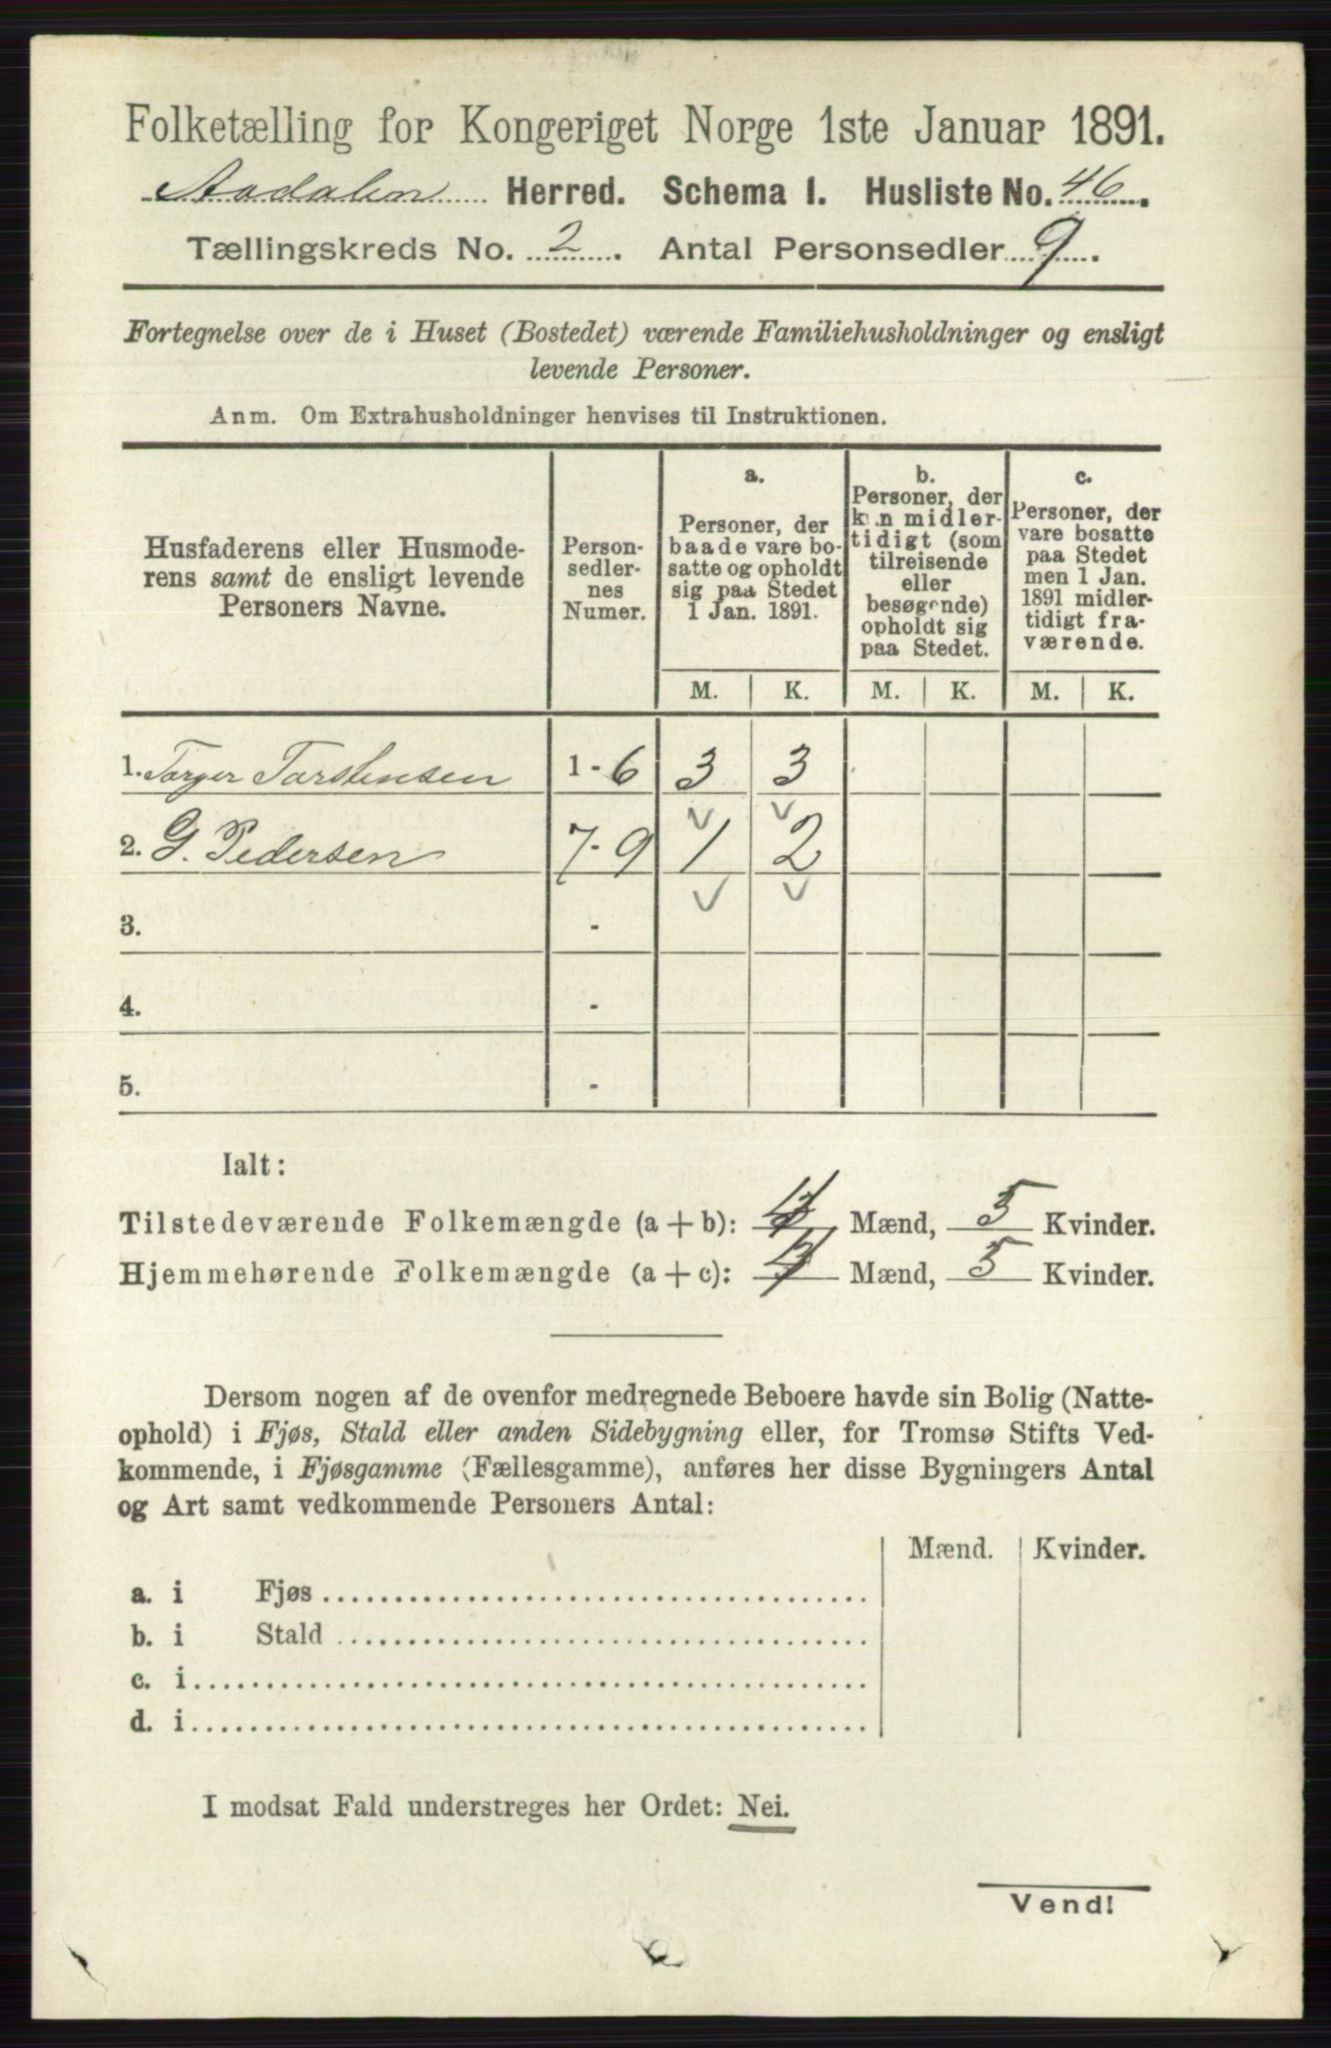 Folketælling for Kongeriget Norge 1ste Januar 1891.
Aadalen Herred. Schema I. Husliste No. 46.
Tællingskreds No. 2. Antal Personsedler 9.
Fortegnelse over de i Huset (Bostedet) værende Familiehusholdninger og ensligt
levende Personer.
Anm. Om Extrahusholdninger henvises til Instruktionen.
Husfaderens eller Husmode-
rens samt de ensligt levende
Personers Navne.
Person-
sedler-
nes
Numer.
a.
Personer, der
baade vare bo-
satte og opholdt
sig paa Stedet
1 Jan. 1891.
b.
Personer, der
kun midler-
tidigt (som
tilreisende
eller
besøgende)
opholdt sig
paa Stedet.
c.
Personer, der
vare bosatte
paa Stedet
men 1 Jan.
1891 midler-
tidigt fra-
værende.
M. K. M. K. M. K.
1. Torger Torstensen 1-6 3 3
2. G. Pedersen 7-9 1 2
3. -
4. -
5. -
Ialt:
Tilstedeværende Folkemængde (a+b): 4 Mænd, 5 Kvinder.
Hjemmehørende Folkemængde (a+c): 4 Mænd, 5 Kvinder.
Dersom nogen af de ovenfor medregnede Beboere havde sin Bolig (Natte-
ophold) i Fjøs, Stald eller anden Sidebygning eller, for Tromsø Stifts Ved-
kommende, i Fjøsgamme (Fællesgamme), anføres her disse Bygningers Antal
og Art samt vedkommende Personers Antal:
Mænd. Kvinder.
a. i Fjøs
b. i Stald
c. i
d. i
I modsat Fald understreges her Ordet: Nei.
Vend!